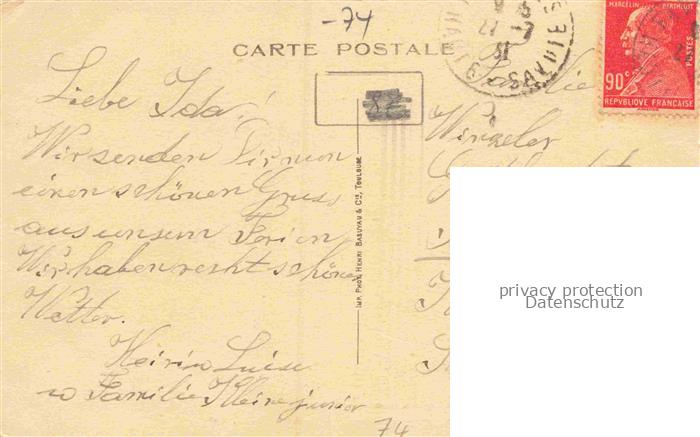 -74
CARTE POSTALE
MARCELIN BERTHELOT
POSTES
90c
REPVBLIQVE FRANÇAISE
SAVOIE
Liebe Ida!
Wir senden Dir nun
einen schönen Gruss
aus unsern Ferien
Wir haben recht schönes
Wetter.
Luise
u Familie Kleine junior
74
IMP. PHOT. HENRI BASUYAU & Cie, TOULOUSE
Familie
Winzeler
privacy protection
Datenschutz